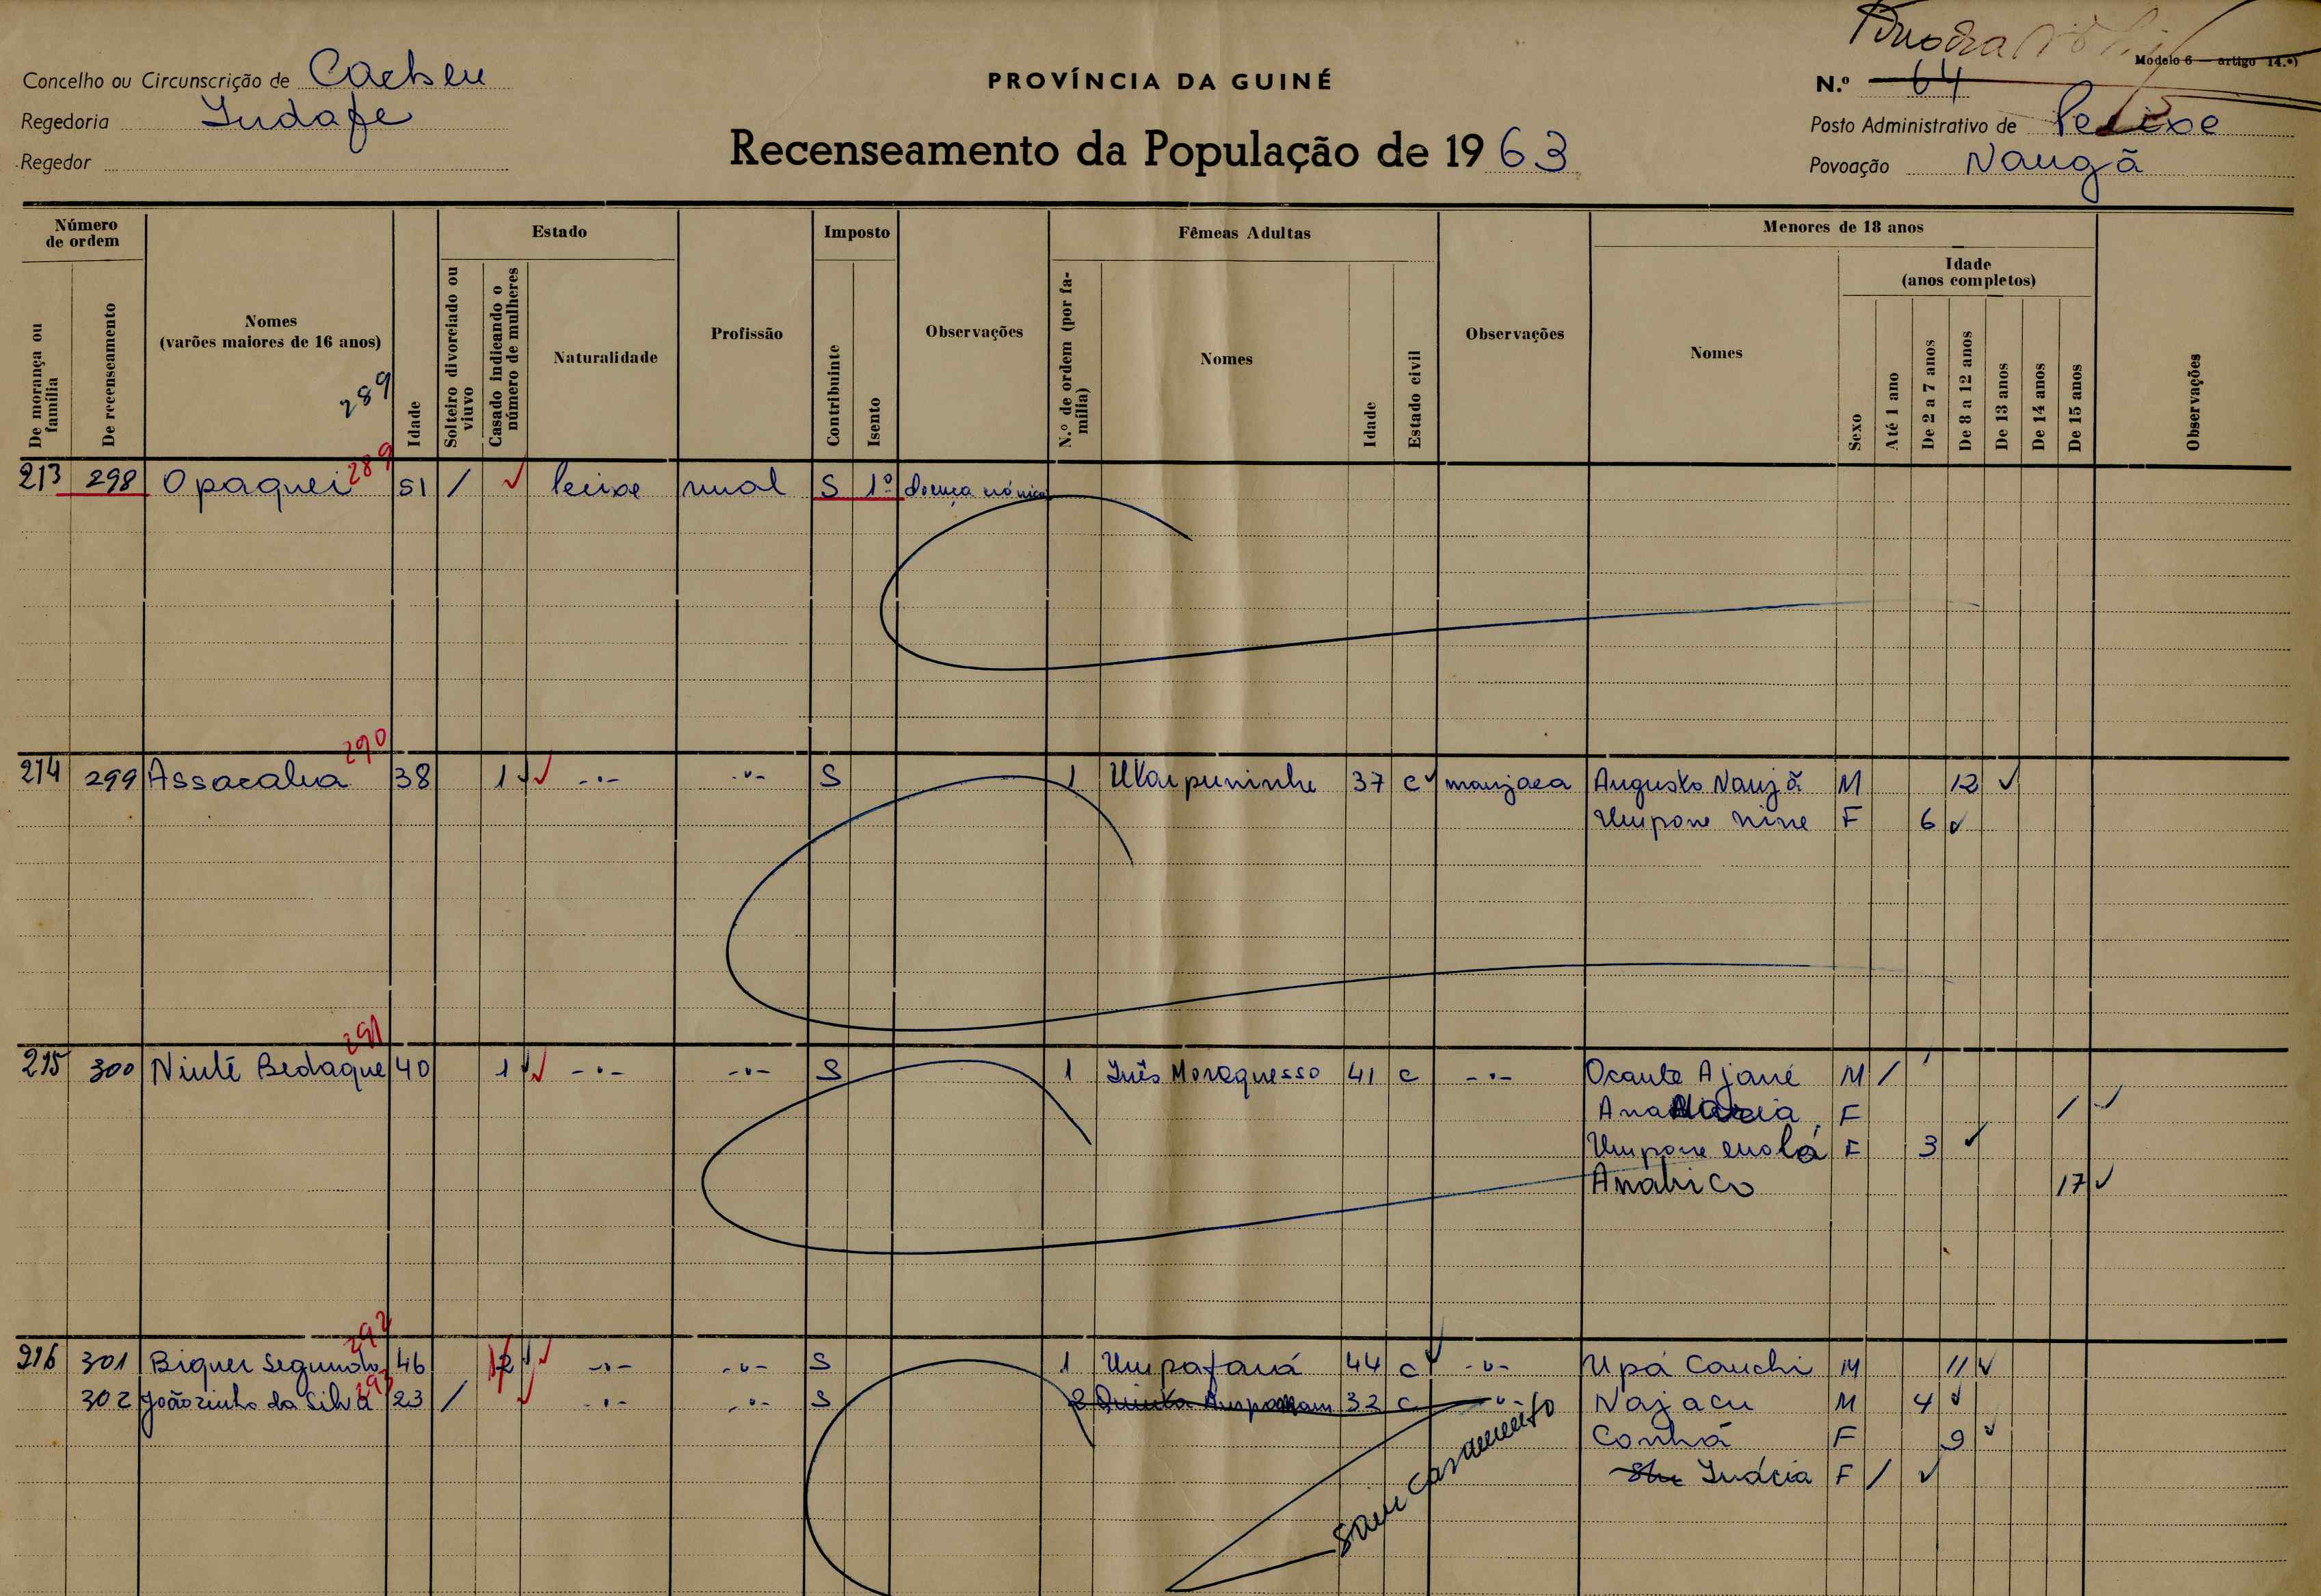 Concelho ou Circunscrição de Cacheu
Regedoria Indafe
Regedor
PROVÍNCIA DA GUINÉ
Recenseamento da População de 1963
Modelo 6 — artigo 14.º)
N.º 64
Posto Administrativo de
Povoação Naugã
Número de ordem
De morança ou família
De recenseamento
Nomes
(varões maiores de 16 anos)
289
Idade
Estado
Solteiro divorciado ou viuvo
Casado indicando o número de mulheres
Naturalidade
Profissão
Imposto
Contribuinte
Isento
Observações
Fêmeas Adultas
N.º de ordem (por família)
Nomes
Idade
Estado civil
Observações
Menores de 18 anos
Nomes
Sexo
Idade
(anos completos)
Até 1 ano
De 2 a 7 anos
De 8 a 12 anos
De 13 anos
De 14 anos
De 15 anos
Observações
289
213 298 Opaquei 51 / rural S 1º doença crónica
290
214 299 Assacalua 38 1 -"- -"- S 1 37 c manjaca Augusto Naujã M 12
Umpone nine F 6
291
215 300 Ninté Bedaque 40 1 -"- -"- S 1 Inês Moraquesso 41 c -"- Ocante Ajané M /
Ana F /
Umpone F 3
Anabico 17
292
216 301 Biquer Segundo 46 2 -"- -"- S 1 Umpafaná 44 c -"- Upá Cauchi M 11
302 Joãozinho da Silva 23 / -"- -"- S 2 Quinta 32 c -"- Najacu M 4
Conhã F 9
Inácia F /
Saiu casamento